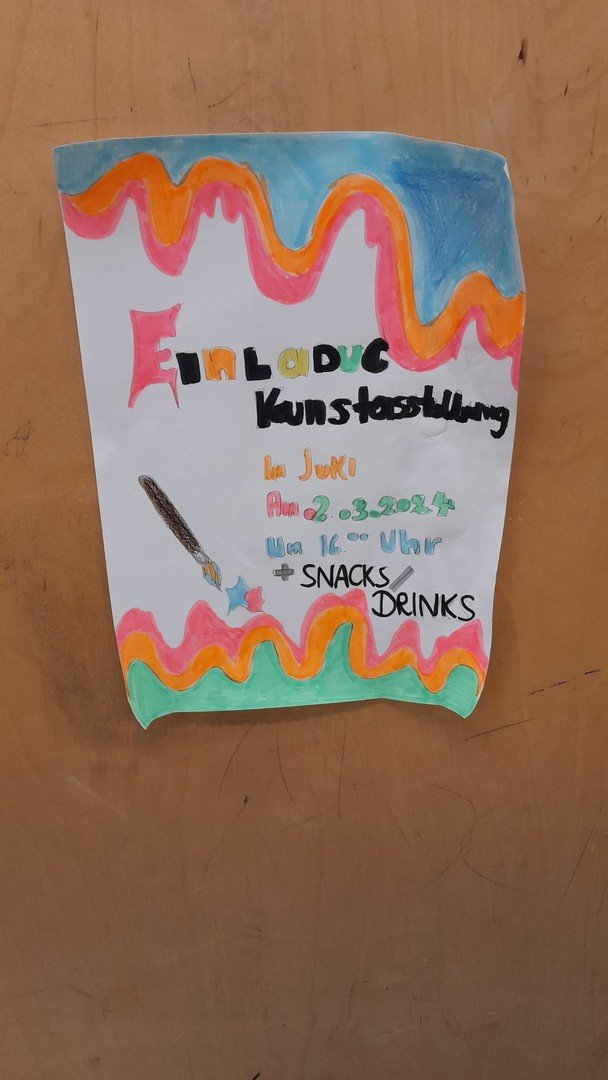 EinLaDuC
Kunstasstellung
In JuKi
Am 2.3.2024
Um 16°° Uhr
+ SNACKS/
DRINKS